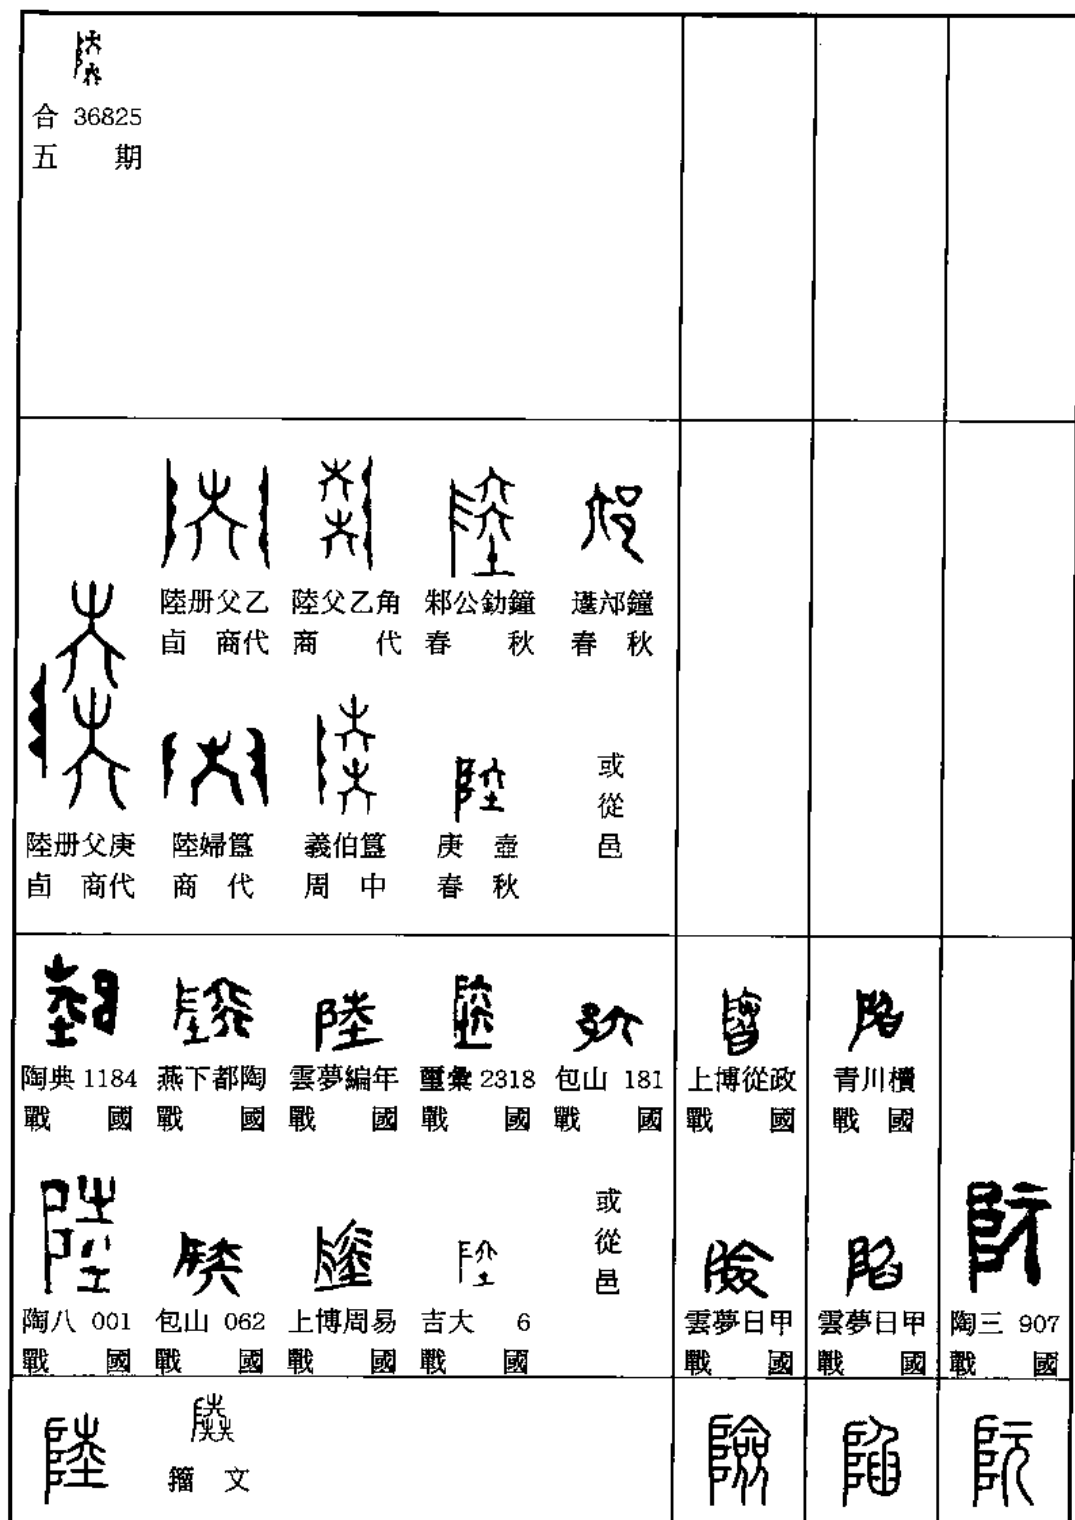 合 36825
五 期
陸册父乙
卣 商代
陸父乙角
商 代
邾公釛鐘
春 秋
䢵鐘
春 秋
陸册父庚
卣 商代
陸婦簋
商 代
義伯簋
周 中
庚 壺
春 秋
或
從
邑
陶典 1184
戰 國
燕下都陶
戰 國
雲夢編年
戰 國
璽彙 2318
戰 國
包山 181
戰 國
上博從政
戰 國
青川櫝
戰 國
陶八 001
戰 國
包山 062
戰 國
上博周易
戰 國
吉大 6
戰 國
或
從
邑
雲夢日甲
戰 國
雲夢日甲
戰 國
陶三 907
戰 國
陸
籀 文
險
陷
阮